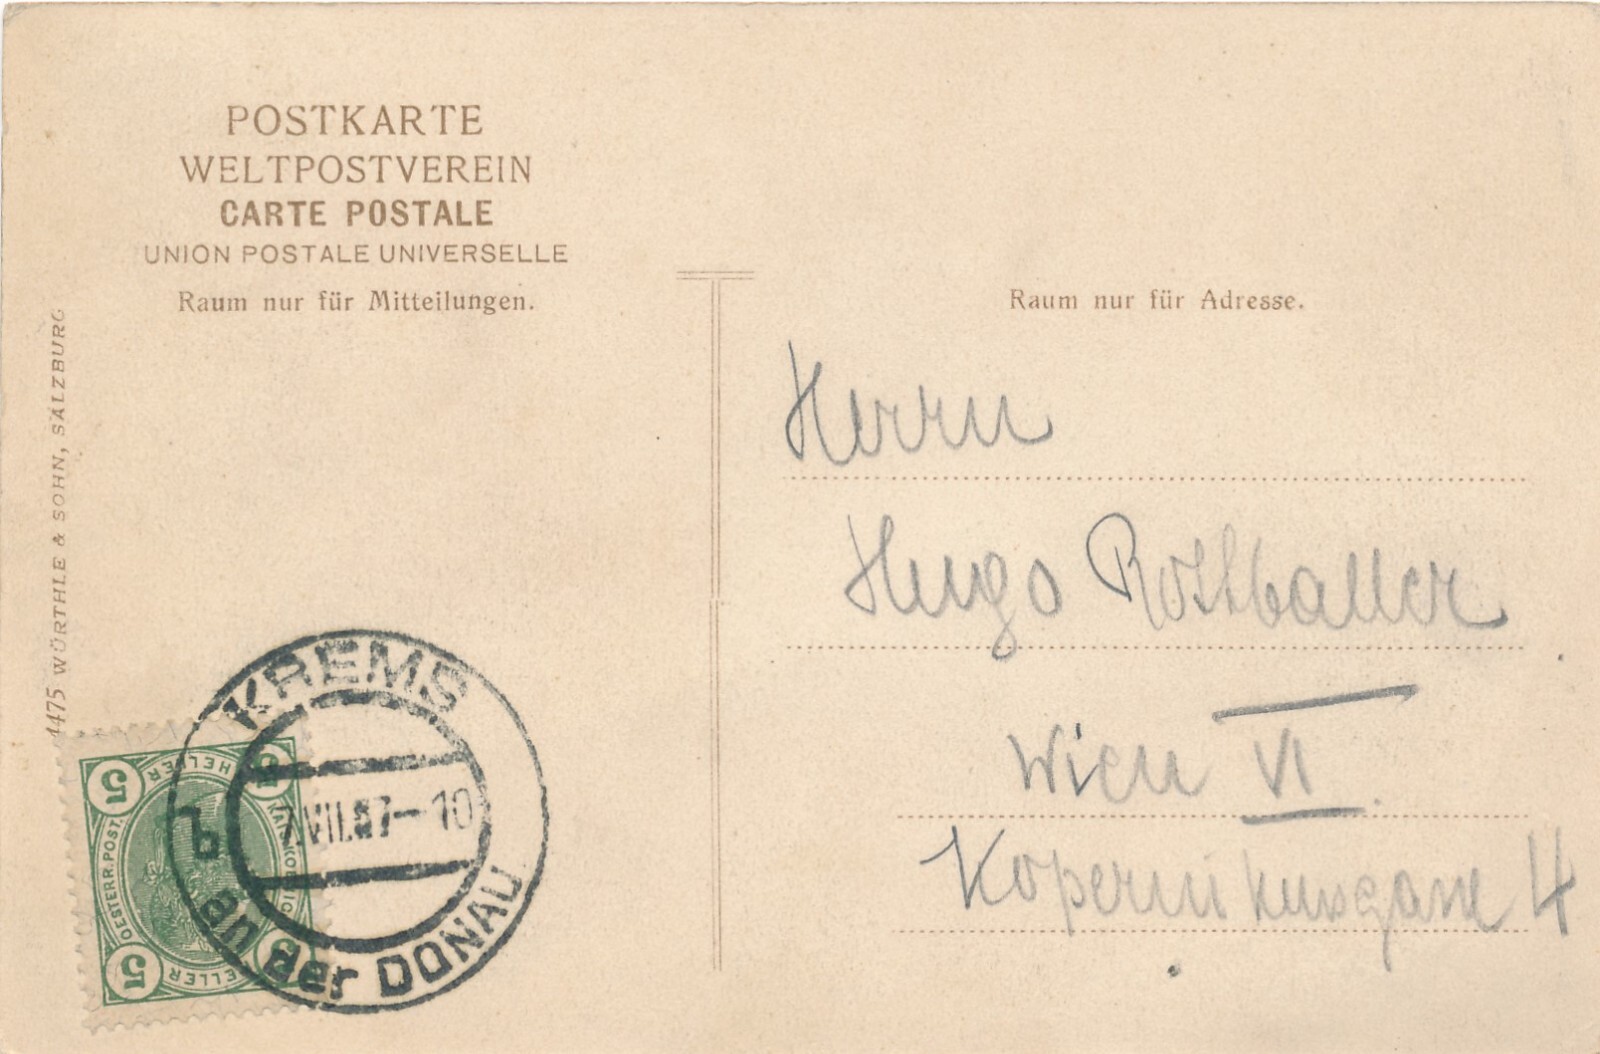 POSTKARTE
WELTPOSTVEREIN
CARTE POSTALE
UNION POSTALE UNIVERSELLE
Raum nur für Mitteilungen.
4475 WÜRTHLE & SOHN, SALZBURG
KREMS
7.VII.07-10
b
an der DONAU
5 HELLER 5
OESTERR. POST.
5 HELLER 5
Raum nur für Adresse.
Herrn
Hugo
Wien VI.
Kopernikusgasse 4